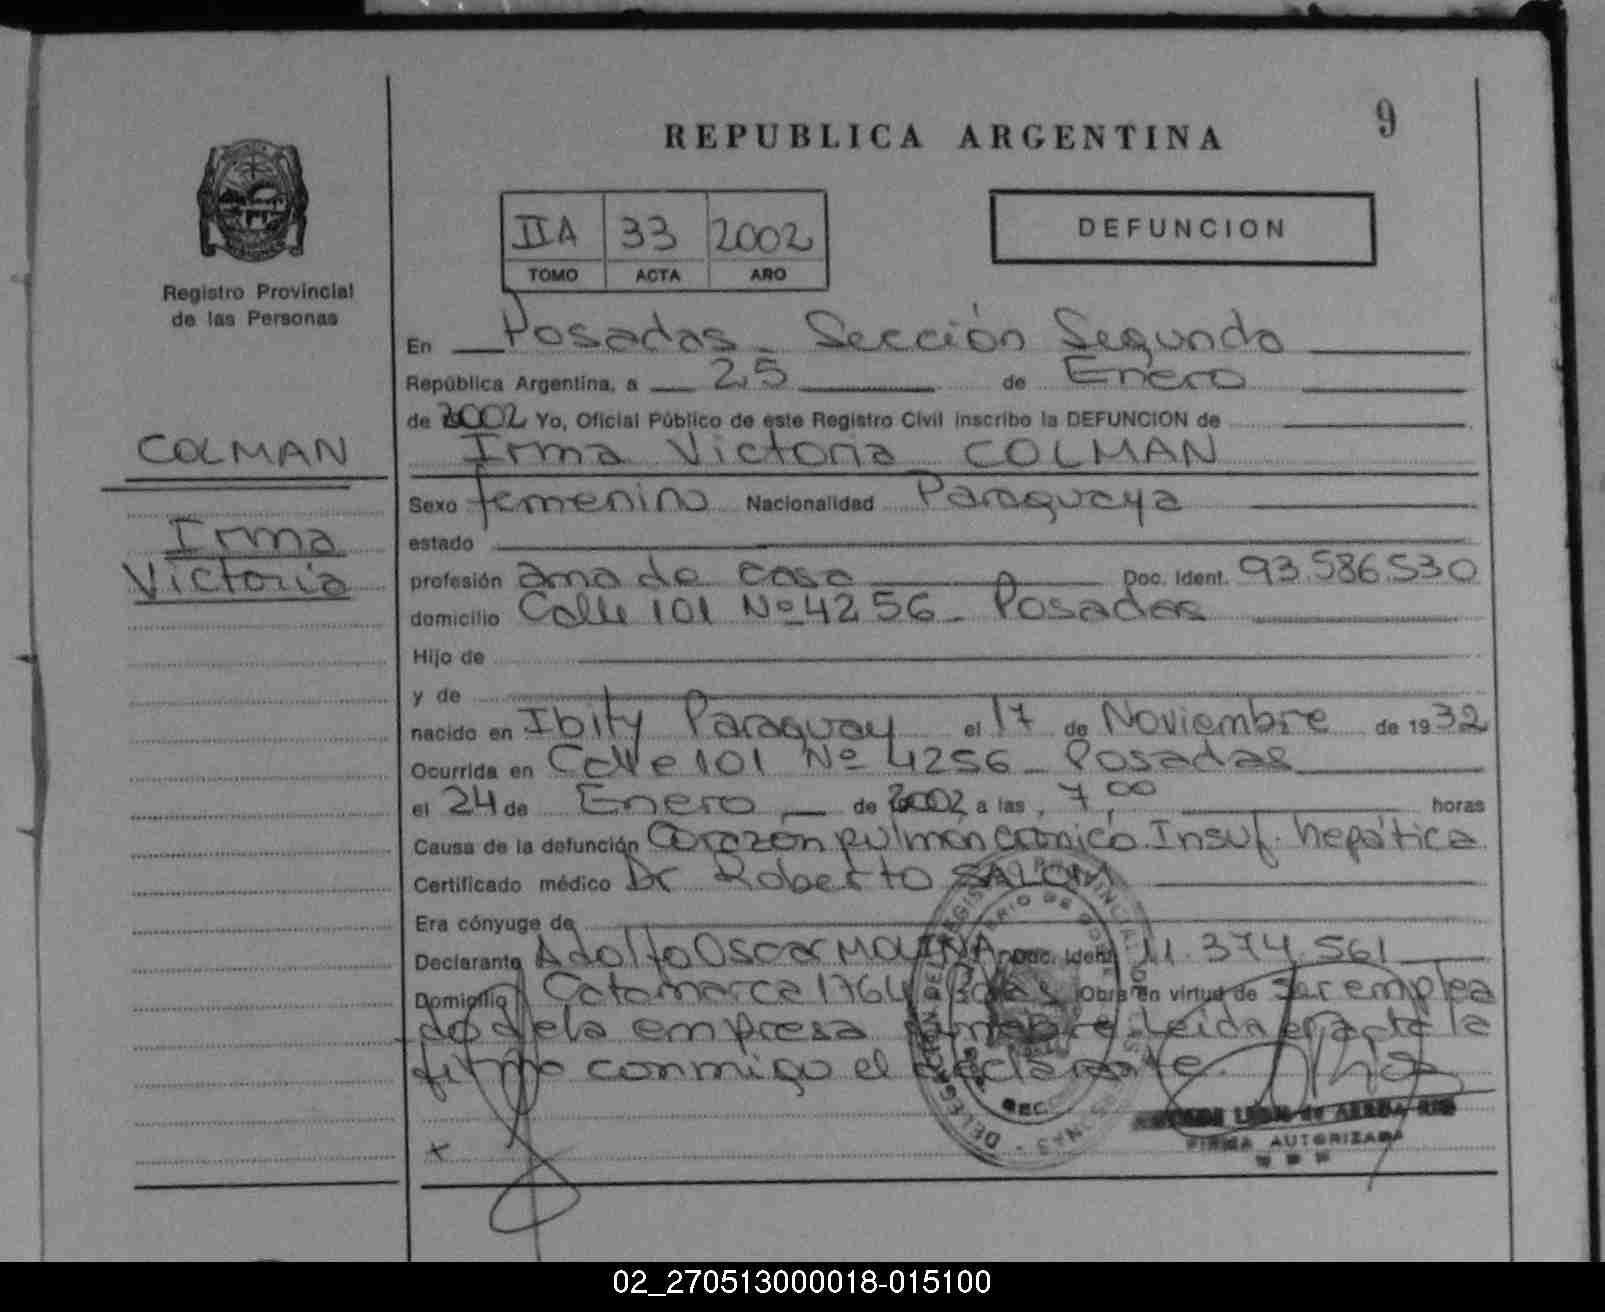 9
REPUBLICA ARGENTINA
DEFUNCION
IIA 33 2002
TOMO ACTA AÑO
Registro Provincial
de las Personas
COLMAN
Irma
Victoria
En Posadas - Sección Segunda
República Argentina, a 25 de Enero
de 2002 Yo, Oficial Público de este Registro Civil inscribo la DEFUNCION de
Irma Victoria COLMAN
Sexo femenino Nacionalidad Paraguaya
estado
profesión ama de casa Doc. Ident. 93.586.530
domicilio Calle 101 Nº 4256 - Posadas
Hijo de
y de
nacido en Ibity Paraguay el 17 de Noviembre de 1932
Ocurrida en Calle 101 Nº 4256 - Posadas
el 24 de Enero de 2002 a las 7,00 horas
Causa de la defunción Corazón pulmon cronico. Insuf. hepática
Certificado médico Dr Roberto SALOM
Era cónyuge de
Declarante Adolfo Oscar MOLINA Doc. Ident. 11.374.561
Domicilio Catamarca 1764 Pdas Obra en virtud de ser emplea
do de la empresa fúnebre Leida el acta la
firma conmigo el declarante.
x
FIRMA AUTORIZADA
02_270513000018-015100